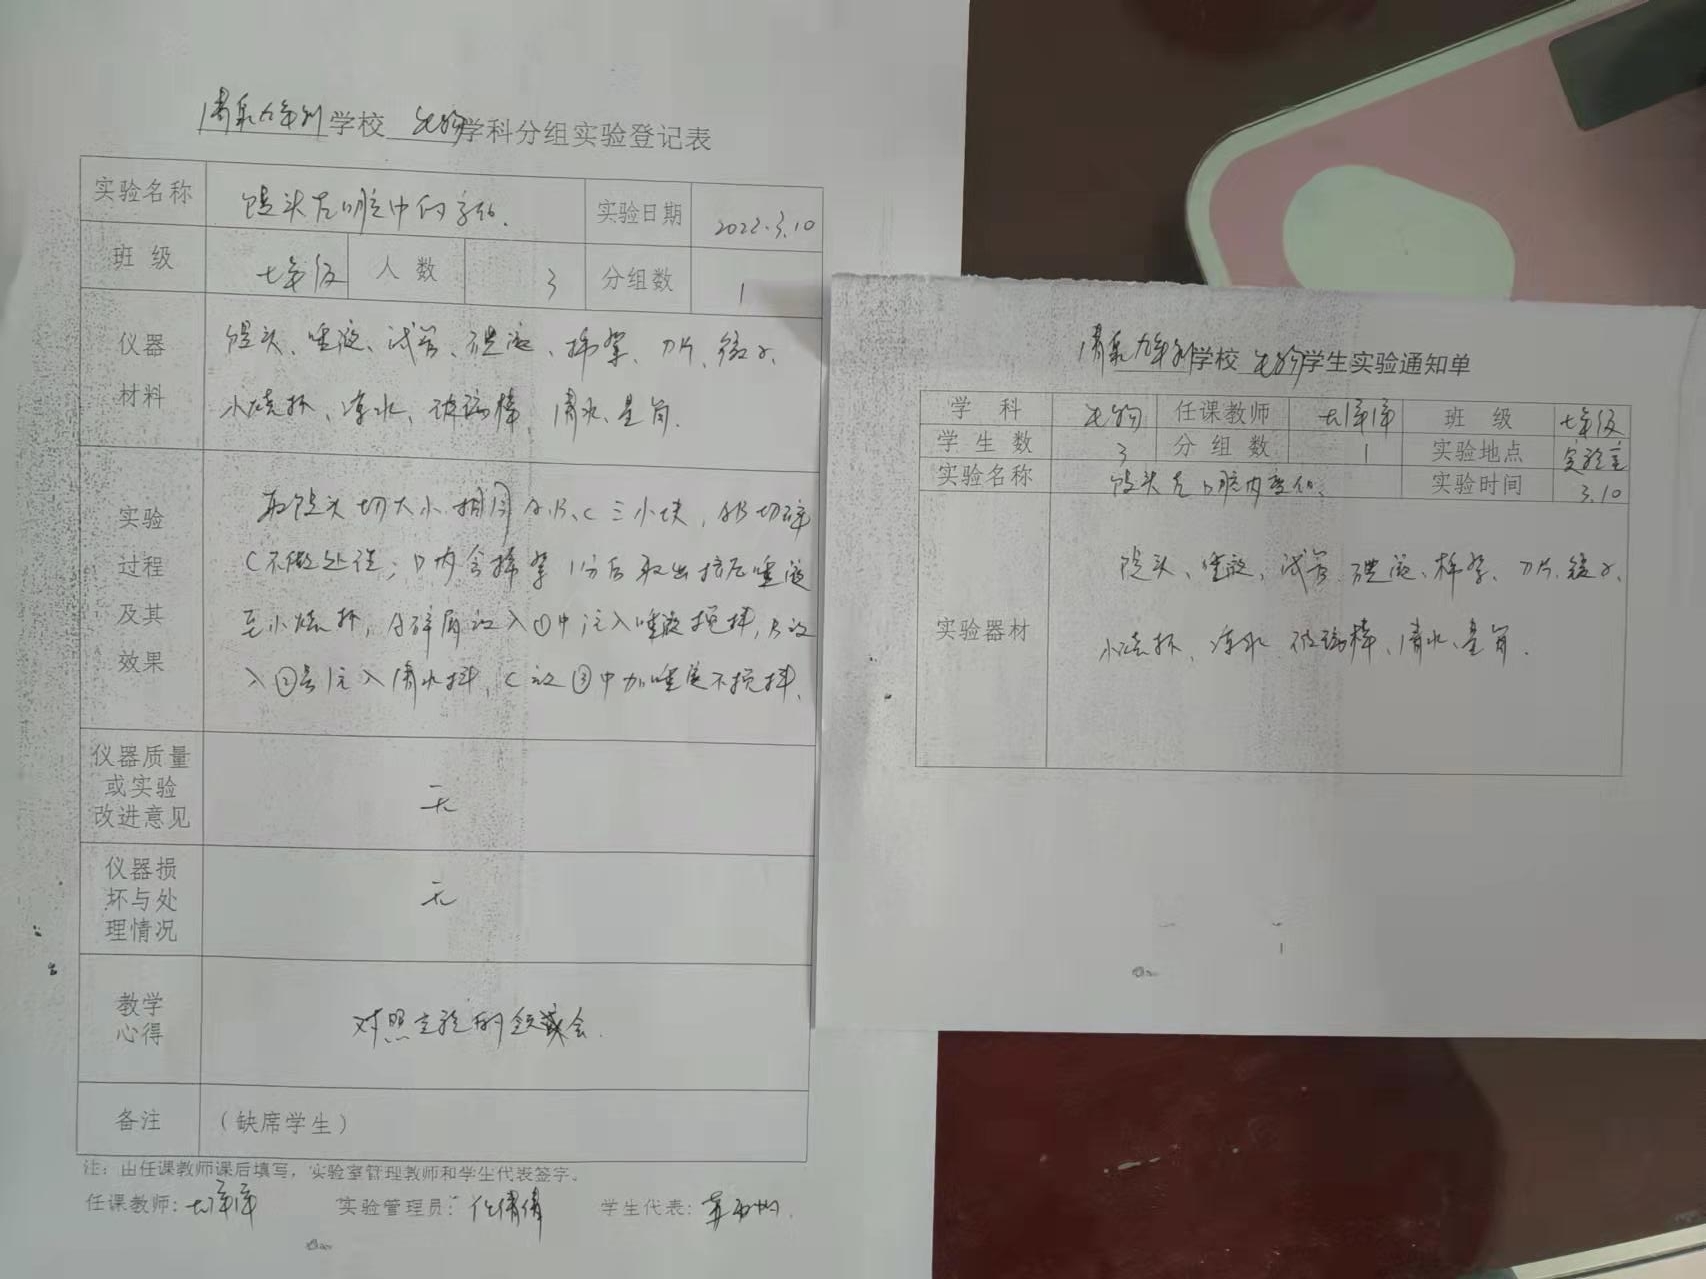 学校 生物学科分组实验登记表
实验名称 馒头在口腔中的变化. 实验日期 2022.3.10
班 级 七年级 人 数 3 分组数 1
仪器 馒头、唾液、试管、碘液、棉絮、刀片、镊子、
材料 小烧杯、凉水、玻璃棒、清水、量筒.
实验 取馒头切大小相同A、B、C三小块,AB切碎
过程 C不做处理;口内含棉絮1分后取出挤压唾液
及其 至小烧杯,A碎屑放入①中注入唾液搅拌,B放
效果 入②号注入清水拌,C放③中加唾液不搅拌.
仪器质量
或实验 无
改进意见
仪器损
坏与处 无
理情况
教学
心得 对照实验的 会.
备注 (缺席学生)
注:由任课教师课后填写,实验室管理教师和学生代表签字。
任课教师: 实验管理员: 学生代表:
学校 生物学生实验通知单
学 科 生物 任课教师 班 级 七年级
学 生 数 3 分 组 数 1 实验地点 实验室
实验名称 馒头在口腔内变化、 实验时间 3.10
馒头、唾液、试管、碘液、棉絮、刀片、镊子、
实验器材 小烧杯、凉水、玻璃棒、清水、量筒.